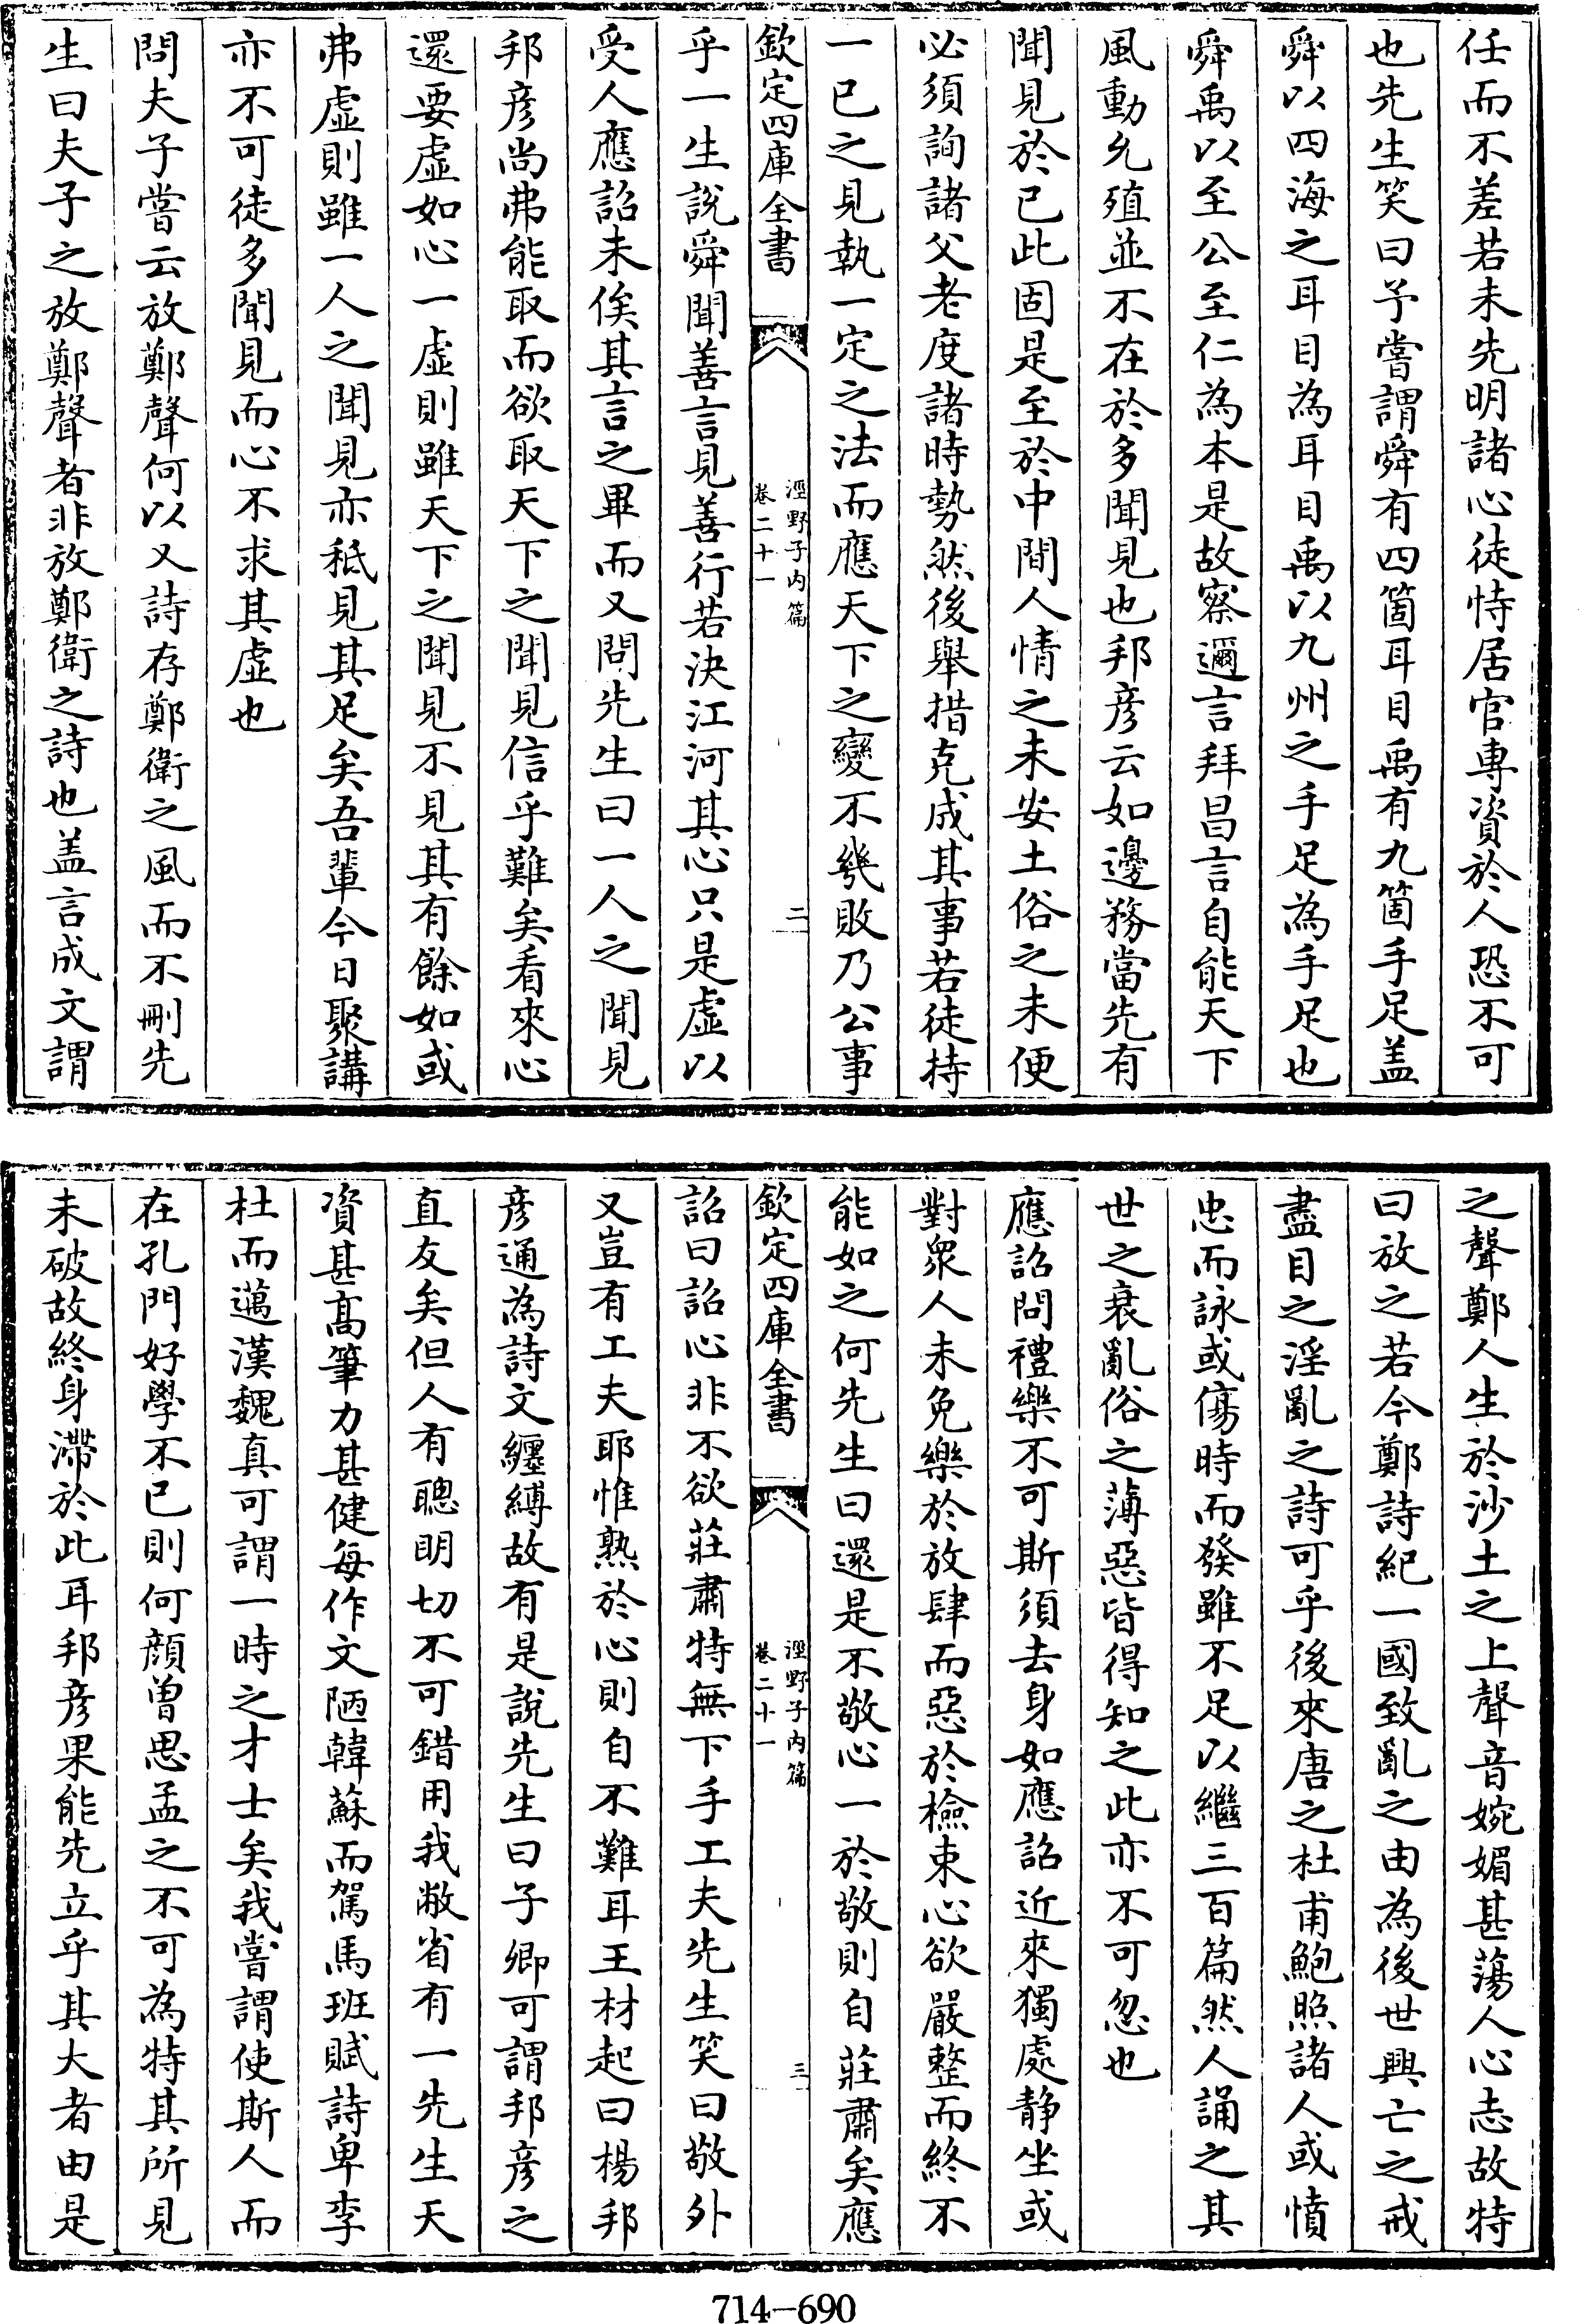 任而不差若未先明諸心徒恃居官專資於人恐不可
也先生笑曰予嘗謂舜有四箇耳目禹有九箇手足盖
舜以四海之耳目為耳目禹以九州之手足為手足也
舜禹以至公至仁為本是故察邇言拜昌言自能天下
風動允殖並不在於多聞見也邦彦云如邊務當先有
聞見於已此固是至於中間人情之未安土俗之未便
必須詢諸父老度諸時勢然後舉措克成其事若徒持
一已之見執一定之法而應天下之變不幾敗乃公事
欽定四庫全書
涇野子内篇
卷二十一
二
乎一生說舜聞善言見善行若決江河其心只是虚以
受人應詔未俟其言之畢而又問先生曰一人之聞見
邦彦尚弗能取而欲取天下之聞見信乎難矣看來心
還要虚如心一虚則雖天下之聞見不見其有餘如或
弗虚則雖一人之聞見亦秪見其足矣吾輩今日聚講
亦不可徒多聞見而心不求其虚也
問夫子嘗云放鄭聲何以又詩存鄭衛之風而不刪先
生曰夫子之放鄭聲者非放鄭衛之詩也盖言成文謂
之聲鄭人生於沙土之上聲音婉媚甚蕩人心志故特
曰放之若今鄭詩紀一國致亂之由為後世興亡之戒
盡目之淫亂之詩可乎後來唐之杜甫鮑照諸人或憤
忠而詠或傷時而發雖不足以繼三百篇然人誦之其
世之衰亂俗之薄惡皆得知之此亦不可忽也
應詔問禮樂不可斯須去身如應詔近來獨處静坐或
對衆人未免樂於放肆而惡於檢束心欲嚴整而終不
能如之何先生曰還是不敬心一於敬則自莊肅矣應
欽定四庫全書
涇野子内篇
卷二十一
三
詔曰詔心非不欲莊肅特無下手工夫先生笑曰敬外
又豈有工夫耶惟熟於心則自不難耳王材起曰楊邦
彦通為詩文纒縛故有是說先生曰子卿可謂邦彦之
直友矣但人有聰明切不可錯用我敝省有一先生天
資甚髙筆力甚健每作文陋韓蘇而駕馬班賦詩卑李
杜而邁漢魏真可謂一時之才士矣我嘗謂使斯人而
在孔門好學不已則何顔曽思孟之不可為特其所見
未破故終身滯於此耳邦彦果能先立乎其大者由是
714-690